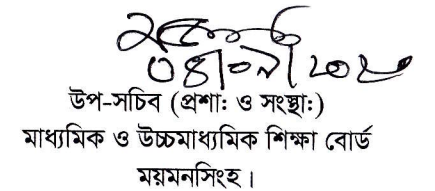 ০৪/০৯/২০২০
উপ-সচিব (প্রশাঃ ও সংস্থাঃ)
মাধ্যমিক ও উচ্চমাধ্যমিক শিক্ষা বোর্ড
ময়মনসিংহ।